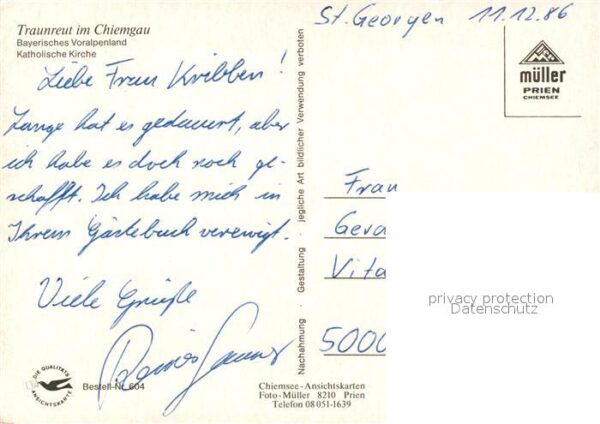 Traunreut im Chiemgau
Bayerisches Voralpenland
Katholische Kirche
Liebe Frau Kribben!
Lange hat es gedauert, aber
ich habe es doch noch ge-
schafft. Ich habe mich in
Ihrem Gästebuch verewigt.
Viele Grüße
DIE QUALITÄTS
ANSICHTSKARTE
Bestell-Nr. 604
Nachahmung · Gestaltung · jegliche Art bildlicher Verwendung verboten
St. Georgen 11.12.86
müller
PRIEN
CHIEMSEE
Frau
Gera
Vita
5000
privacy protection
Datenschutz
Chiemsee-Ansichtskarten
Foto-Müller 8210 Prien
Telefon 08051-1639